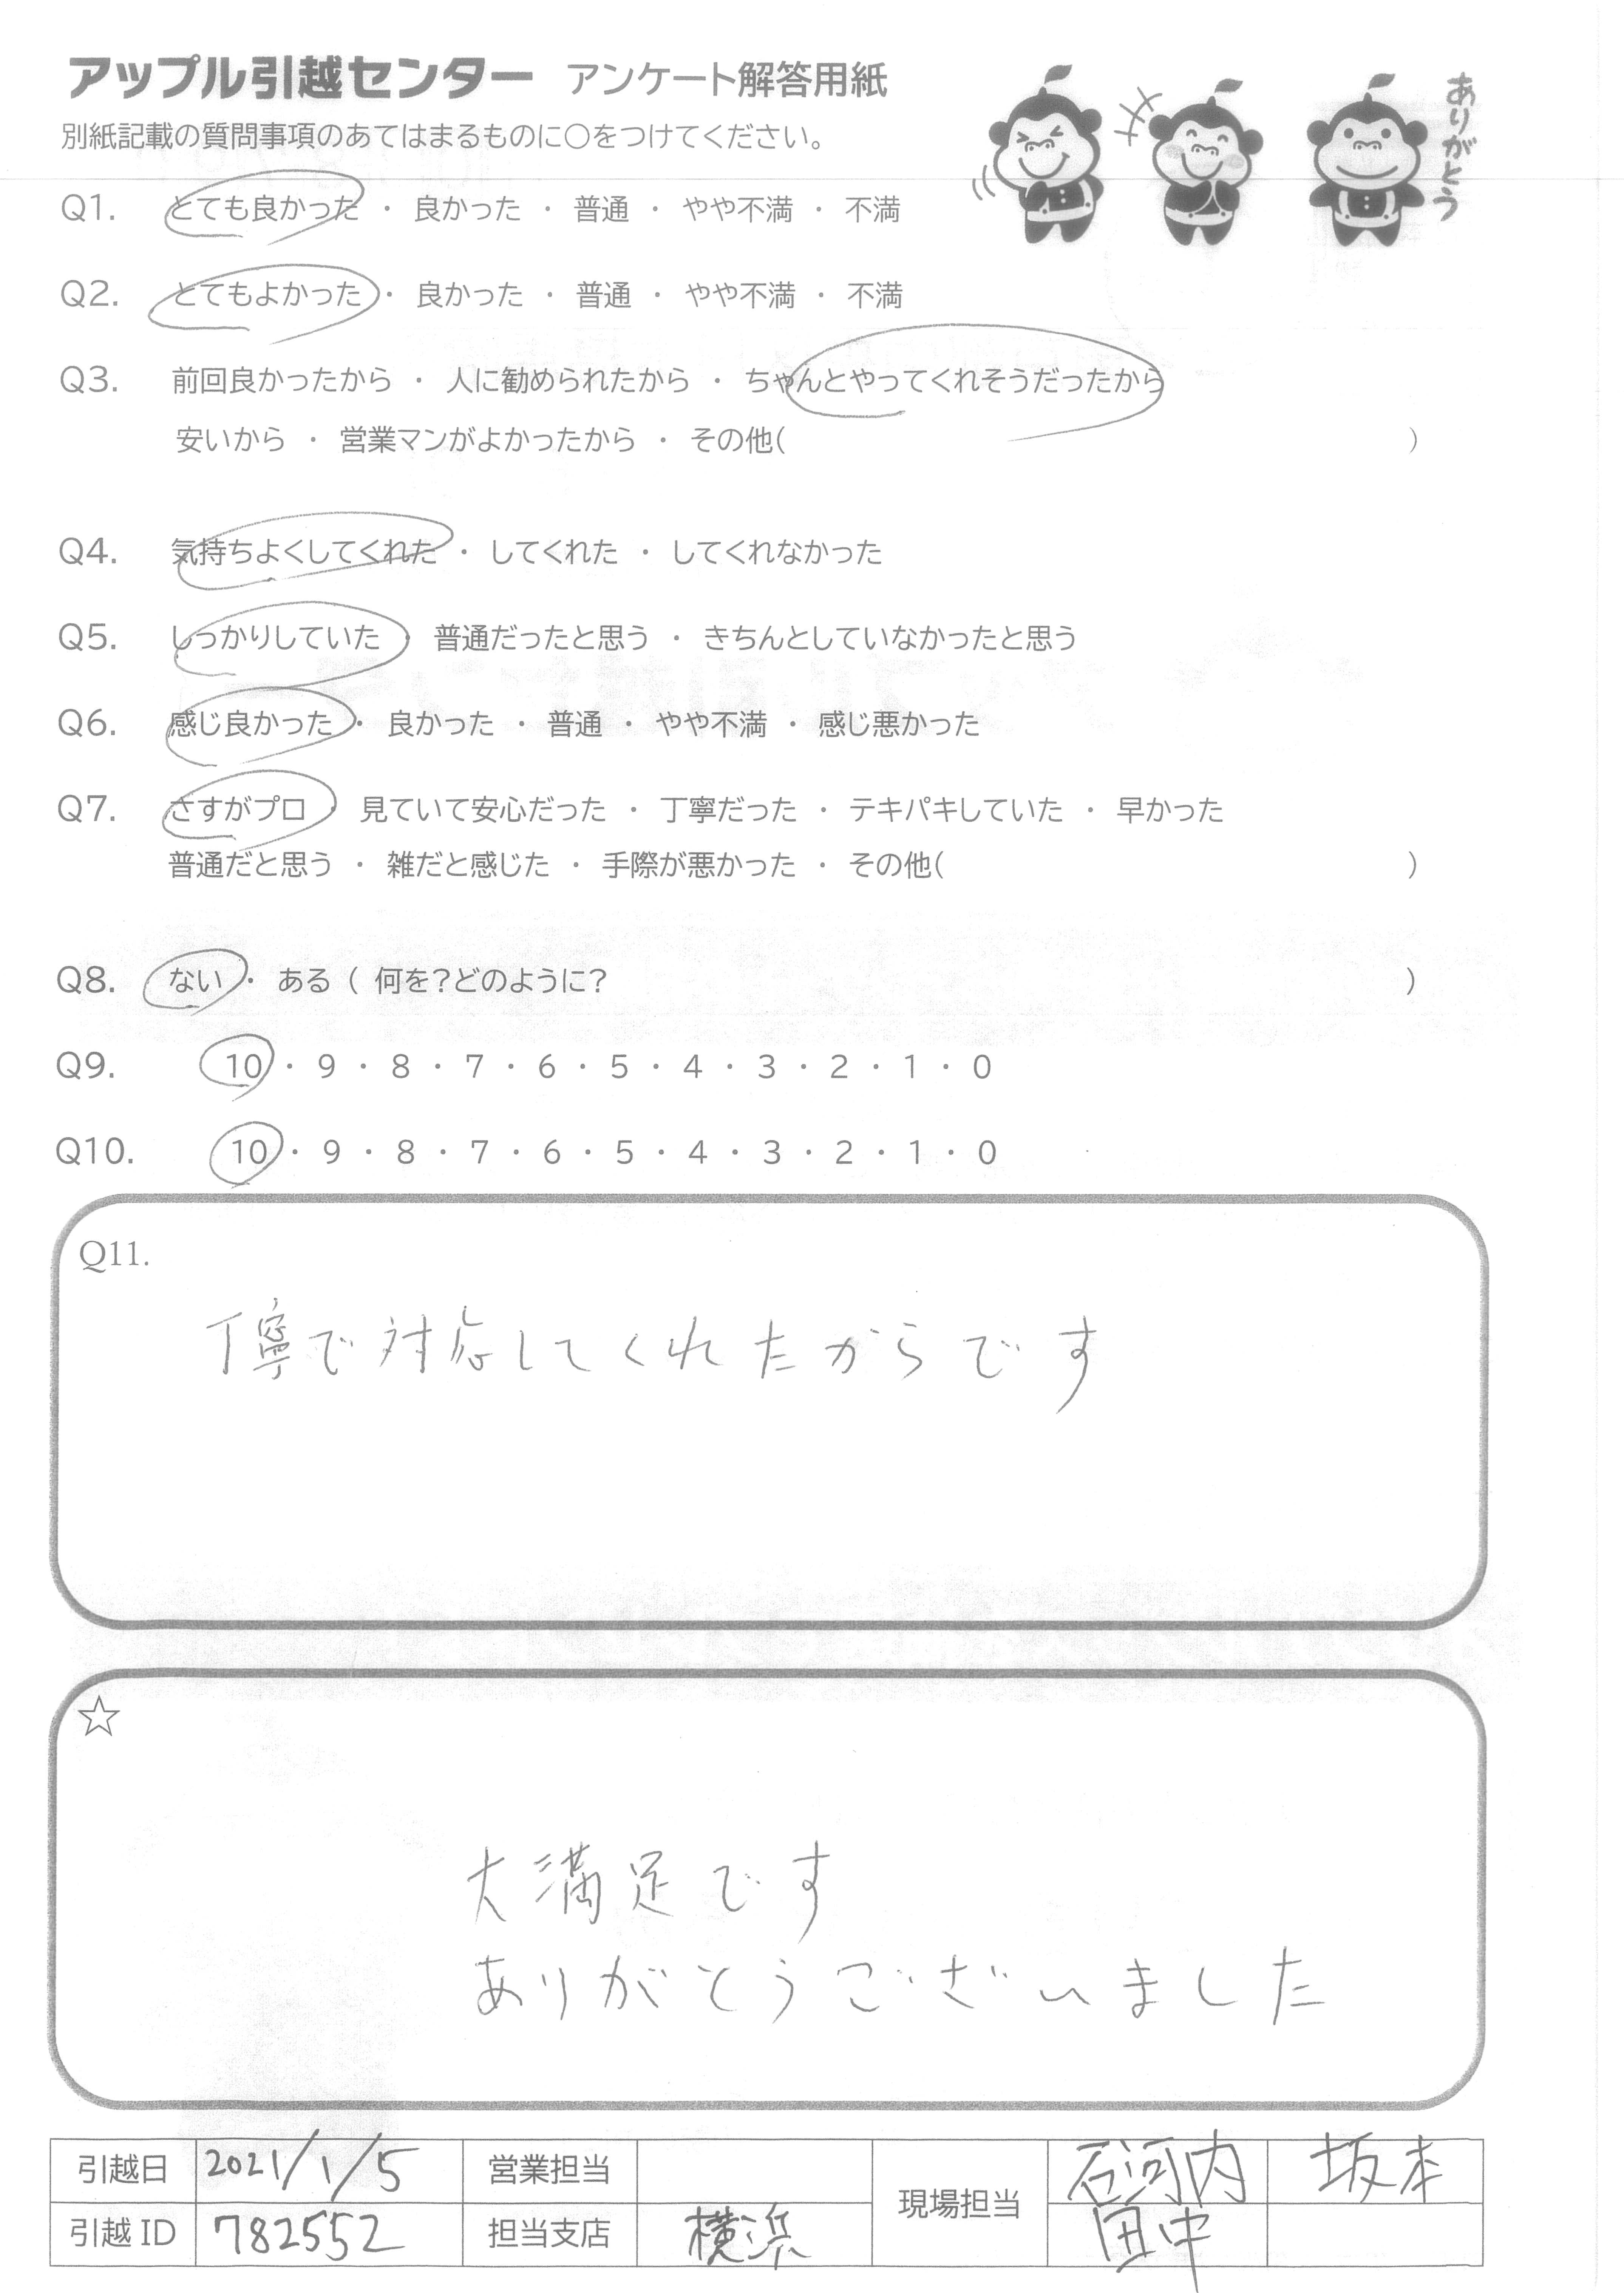 アップル引越センター アンケート解答用紙
ありがとう
別紙記載の質問事項のあてはまるものに○をつけてください。
Q1. とても良かった ・ 良かった ・ 普通 ・ やや不満 ・ 不満
Q2. とてもよかった ・ 良かった ・ 普通 ・ やや不満 ・ 不満
Q3. 前回良かったから ・ 人に勧められたから ・ ちゃんとやってくれそうだったから
安いから ・ 営業マンがよかったから ・ その他( )
Q4. 気持ちよくしてくれた ・ してくれた ・ してくれなかった
Q5. しっかりしていた ・ 普通だったと思う ・ きちんとしていなかったと思う
Q6. 感じ良かった ・ 良かった ・ 普通 ・ やや不満 ・ 感じ悪かった
Q7. さすがプロ ・ 見ていて安心だった ・ 丁寧だった ・ テキパキしていた ・ 早かった
普通だと思う ・ 雑だと感じた ・ 手際が悪かった ・ その他( )
Q8. ない ・ ある ( 何を?どのように? )
Q9. 10 ・ 9 ・ 8 ・ 7 ・ 6 ・ 5 ・ 4 ・ 3 ・ 2 ・ 1 ・ 0
Q10. 10 ・ 9 ・ 8 ・ 7 ・ 6 ・ 5 ・ 4 ・ 3 ・ 2 ・ 1 ・ 0
Q11.
丁寧で対応してくれたからです
☆
大満足です
ありがとうございました
引越日 2021/1/5 営業担当 現場担当 石河内 坂本
引越ID 782552 担当支店 横浜 田中